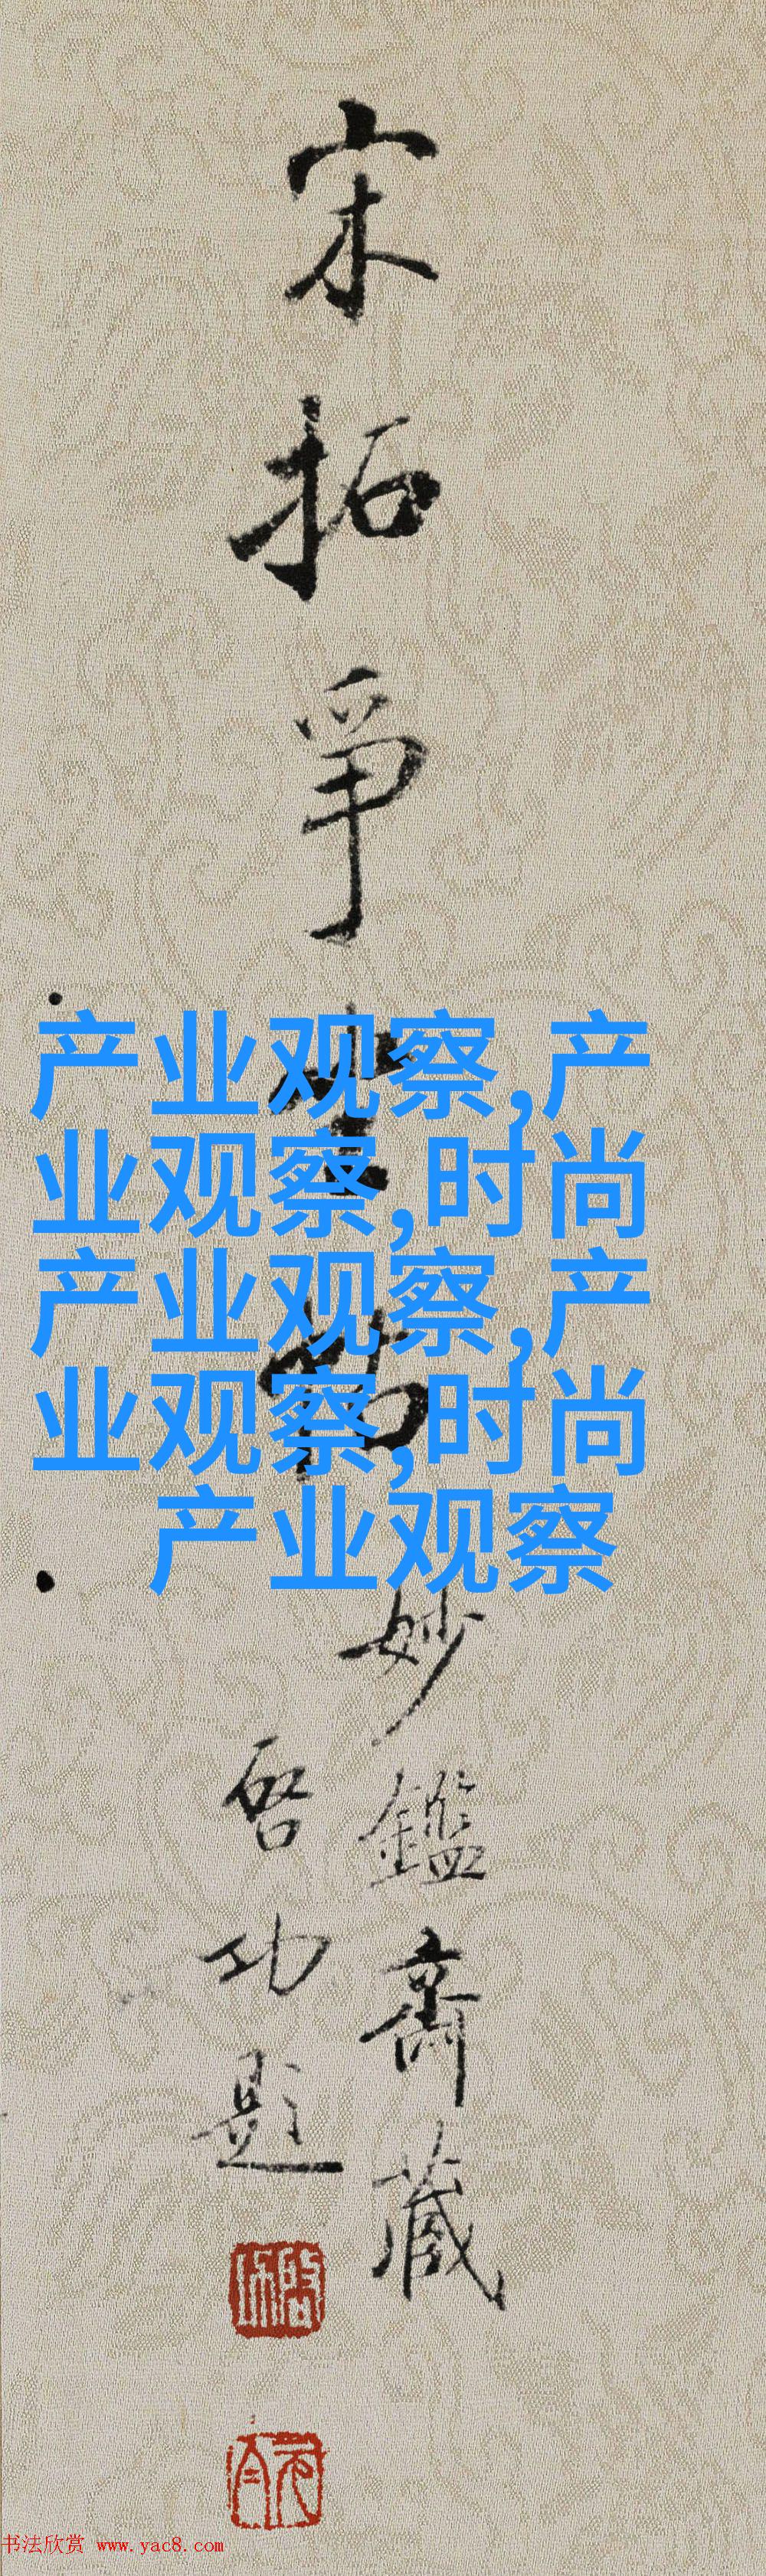 宋拓爭
产业观察,产
业观察,时尚
产业观察,产
业观察,时尚
产业观察
妙鑑齋藏
启功题
书法欣赏 www.yac8.com